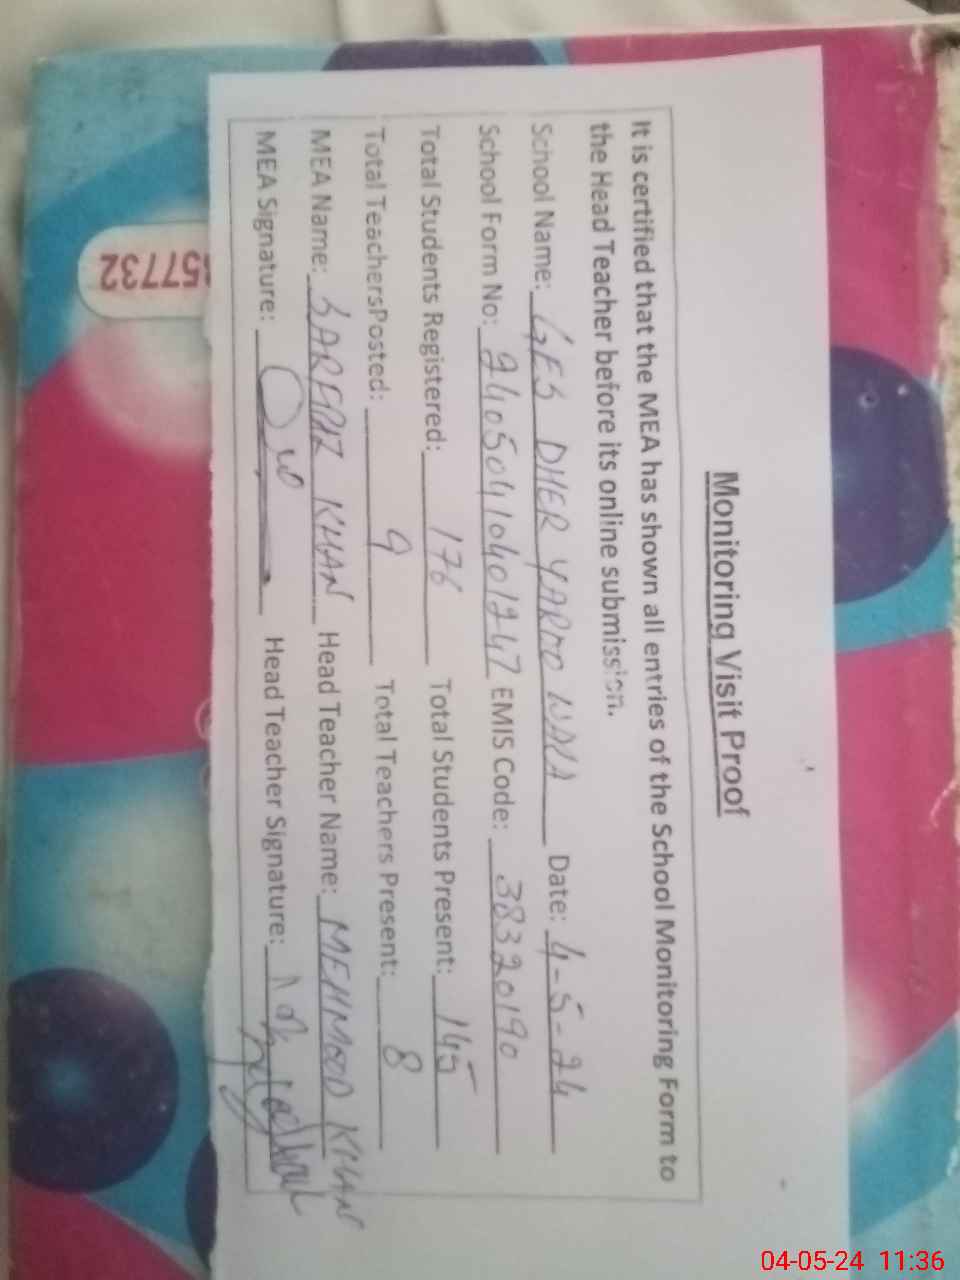 Monitoring Visit Proof
It is certified that the MEA has shown all entries of the School Monitoring Form to
the Head Teacher before its online submission.
School Name: GES DHER YAROO NANA Date: 4-5-24
School Form No: 24050410401247 EMIS Code: 38320190
Total Students Registered: 176 Total Students Present: 145
Total TeachersPosted: 9 Total Teachers Present: 8
MEA Name: SARFRAZ KHAN Head Teacher Name: MEHMOOD KHAN
MEA Signature: Head Teacher Signature:
57732
04-05-24 11:36